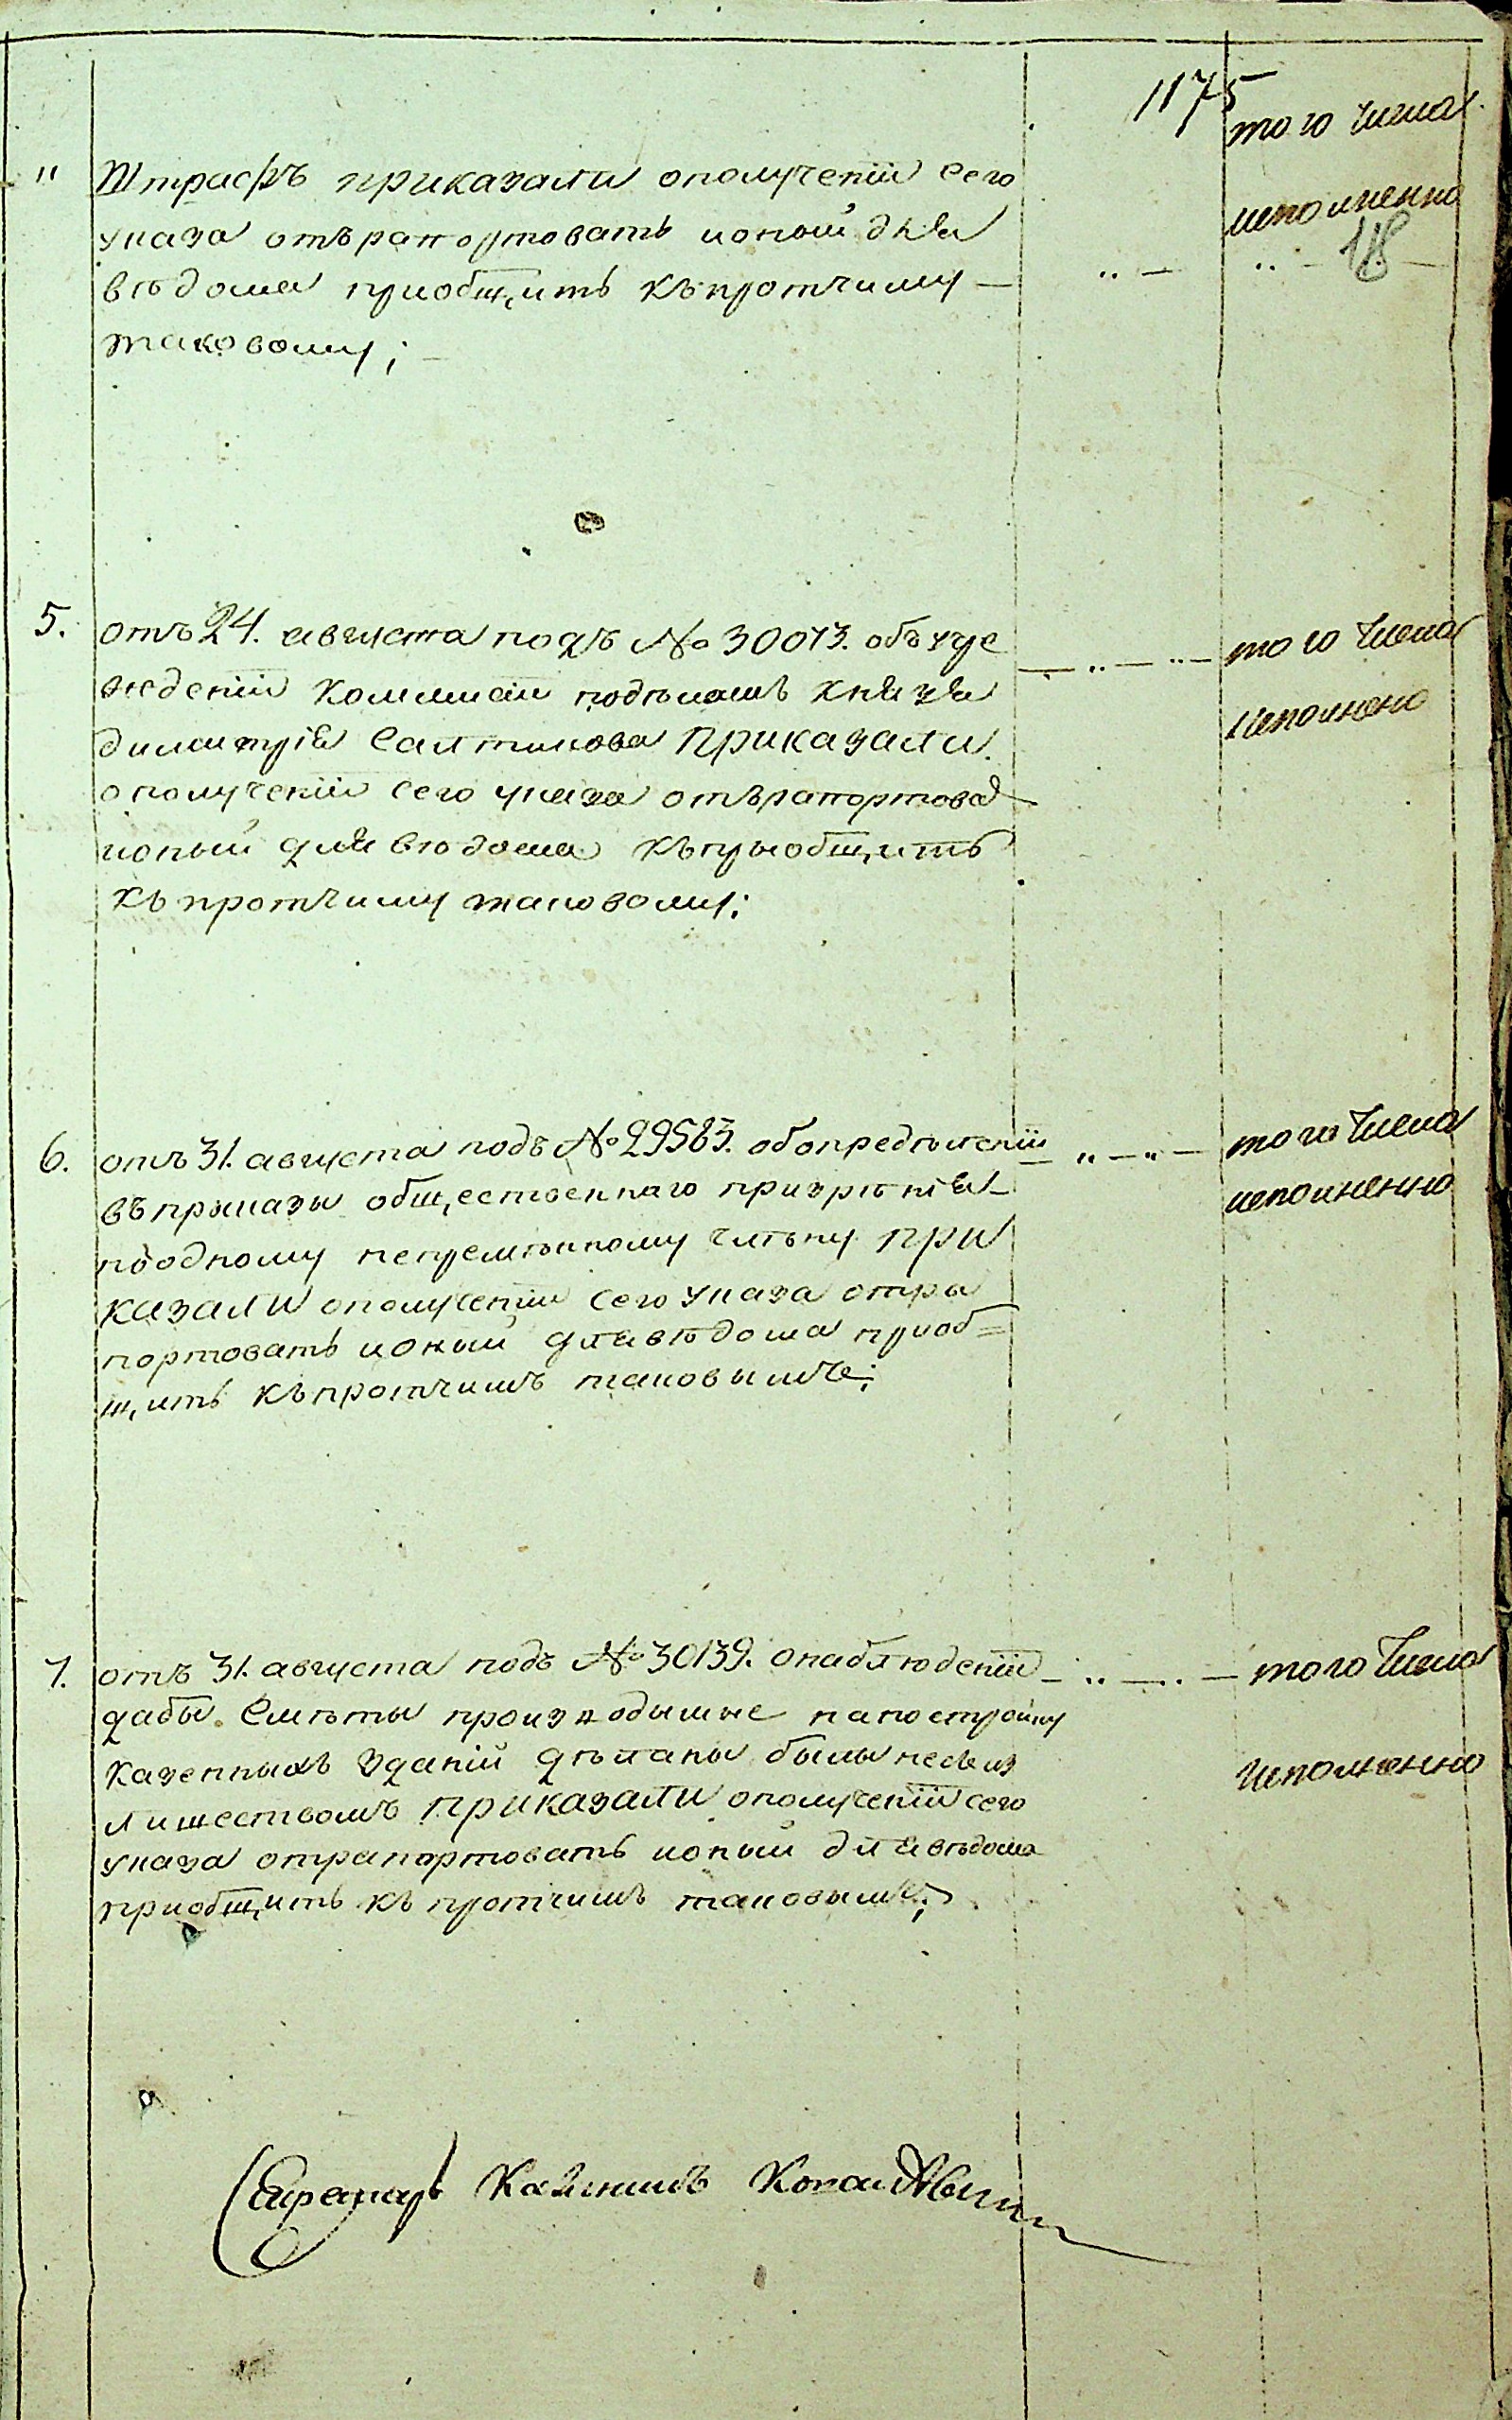 1175
того числа
исполненно
118
" Штрафъ приказали ополученіи сего
указа отърапортовать ионый для
въдома приобщить къпротчиму
таковому;
5. отъ 24. августа подъ № 30073. объ учре
ждении коммисіи подъ имѣ князя
димитрія Салтыкова Приказали
ополученіи сего указа отърапортова
ионый для вѣдома къприобщить
къ протчиму таковому;
того числа
исполнено
6. отъ 31. августа подъ № 29583. обопредѣленіи
въприказы общественнаго призрѣнія
поодному непремѣнному члѣну При
казали ополученіи сего указа отра
портовать ионый длявѣдома приоб=
щить къпротчимъ таковымъ;
того числа
исполненно
7. отъ 31. августа подъ № 30139. онаблюденіи
дабы смѣты производимые напостройку
казенныхъ зданій дѣланы были несъиз
лишествомъ Приказали ополученіи сего
указа отрапортовать ионый для вѣдома
приобщить къ протчимъ таковымъ;
того числа
исполненно
Секретарь